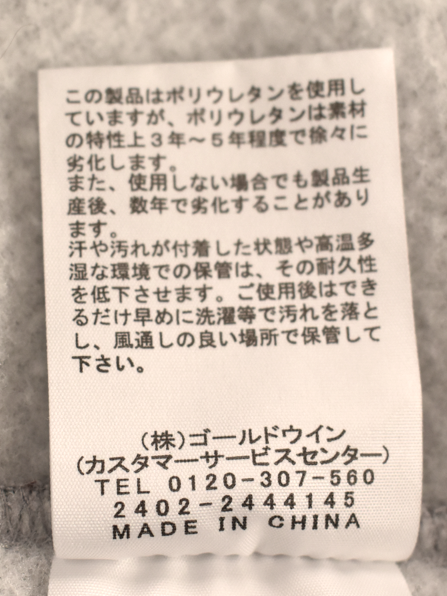 この製品はポリウレタンを使用し
ていますが、ポリウレタンは素材
の特性上３年～５年程度で徐々に
劣化します。
また、使用しない場合でも製品生
産後、数年で劣化することがあり
ます。
汗や汚れが付着した状態や高温多
湿な環境での保管は、その耐久性
を低下させます。ご使用後はでき
るだけ早めに洗濯等で汚れを落と
し、風通しの良い場所で保管して
下さい。
（株）ゴールドウイン
(カスタマーサービスセンター)
TEL 0120-307-560
2402-2444145
MADE IN CHINA